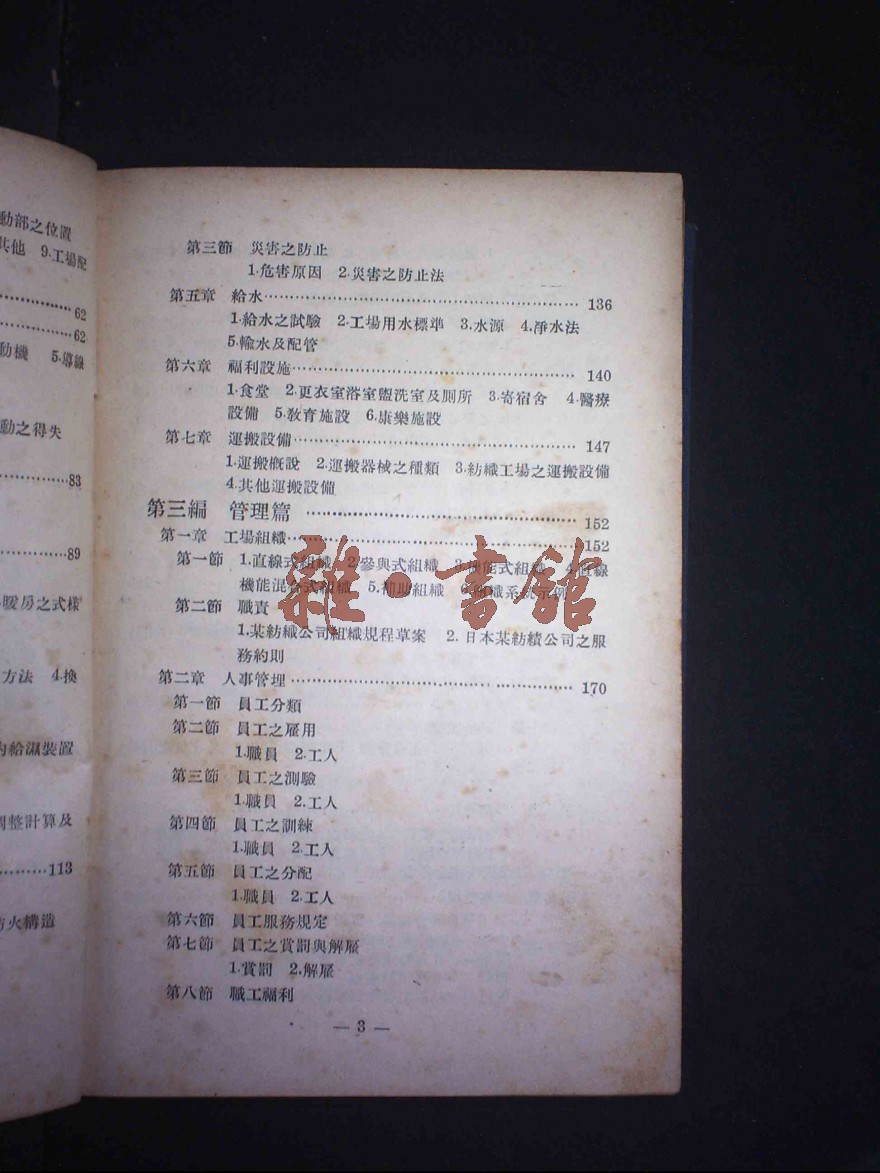 動部之位置
其他 9.工場配
62
62
動機 5.導線
動之得失
83
89
暖房之式樣
方法 4.換
內給濕裝置
調整計算及
113
防火構造
第三節 災害之防止
1.危害原因 2.災害之防止法
第五章 給水 136
1.給水之試驗 2.工場用水標準 3.水源 4.淨水法
5.輸水及配管
第六章 福利設施 140
1.食堂 2.更衣室浴室盥洗室及厠所 3.寄宿舍 4.醫療
設備 5.敎育施設 6.康樂施設
第七章 運搬設備 147
1.運搬槪說 2.運搬器械之種類 3.紡織工場之運搬設備
4.其他運搬設備
第三編 管理篇 152
第一章 工場組織 152
第一節 1.直線式組織 2.參與式組織 3.機能式組織 4.直線
機能混合式組織 5.補助組織 6.組織系統示例
第二節 職責
1.某紡織公司組織規程草案 2.日本某紡績公司之服
務約則
第二章 人事管理 170
第一節 員工分類
第二節 員工之雇用
1.職員 2.工人
第三節 員工之測驗
1.職員 2.工人
第四節 員工之訓練
1.職員 2.工人
第五節 員工之分配
1.職員 2.工人
第六節 員工服務規定
第七節 員工之賞罰與解雇
1.賞罰 2.解雇
第八節 職工福利
— 3 —
雜·書館